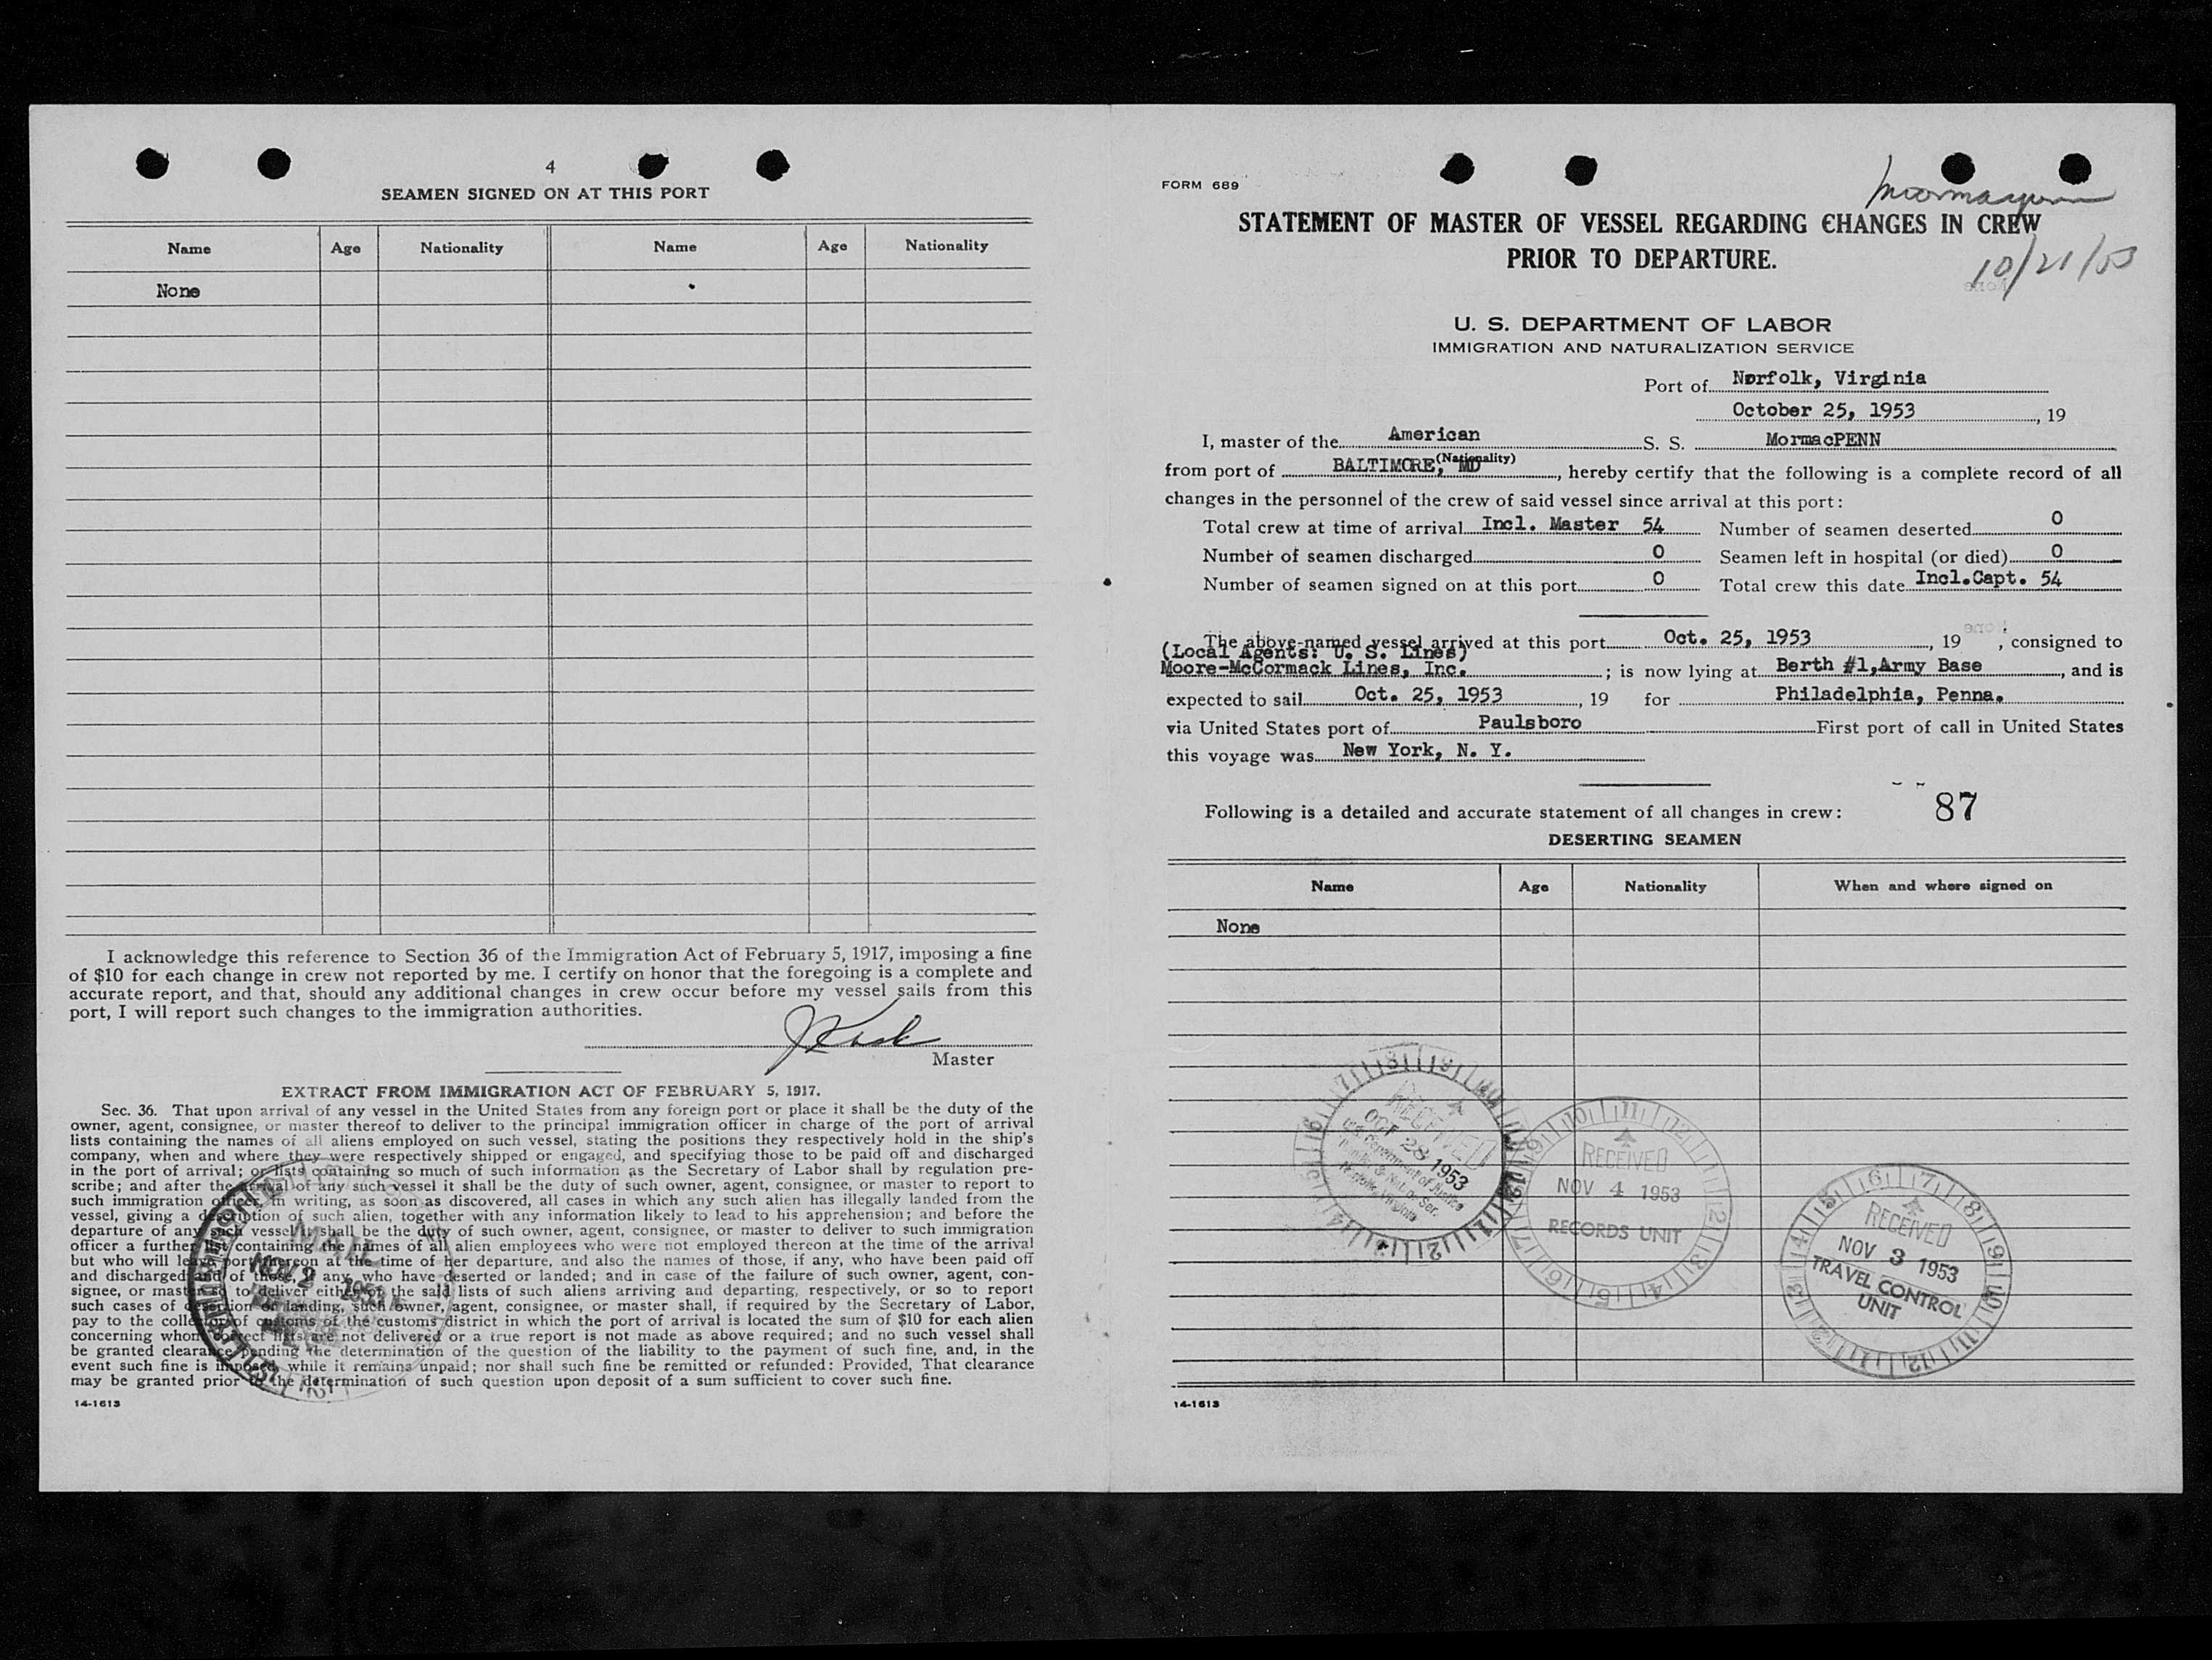 4
SEAMEN SIGNED ON AT THIS PORT
Name Age Nationality Name Age Nationality
None
I acknowledge this reference to Section 36 of the Immigration Act of February 5, 1917, imposing a fine
of $10 for each change in crew not reported by me. I certify on honor that the foregoing is a complete and
accurate report, and that, should any additional changes in crew occur before my vessel sails from this
port, I will report such changes to the immigration authorities.
Master
EXTRACT FROM IMMIGRATION ACT OF FEBRUARY 5, 1917.
Sec. 36. That upon arrival of any vessel in the United States from any foreign port or place it shall be the duty of the
owner, agent, consignee, or master thereof to deliver to the principal immigration officer in charge of the port of arrival
lists containing the names of all aliens employed on such vessel, stating the positions they respectively hold in the ship's
company, when and where they were respectively shipped or engaged, and specifying those to be paid off and discharged
in the port of arrival; or lists containing so much of such information as the Secretary of Labor shall by regulation pre-
scribe; and after the arrival of any such vessel it shall be the duty of such owner, agent, consignee, or master to report to
such immigration officer, in writing, as soon as discovered, all cases in which any such alien has illegally landed from the
vessel, giving a description of such alien, together with any information likely to lead to his apprehension; and before the
departure of any such vessel it shall be the duty of such owner, agent, consignee, or master to deliver to such immigration
officer a further list containing the names of all alien employees who were not employed thereon at the time of the arrival
but who will leave port thereon at the time of her departure, and also the names of those, if any, who have been paid off
and discharged, and of those, if any, who have deserted or landed; and in case of the failure of such owner, agent, con-
signee, or master so to deliver either of the said lists of such aliens arriving and departing, respectively, or so to report
such cases of desertion or landing, such owner, agent, consignee, or master shall, if required by the Secretary of Labor,
pay to the collector of customs of the customs district in which the port of arrival is located the sum of $10 for each alien
concerning whom correct lists are not delivered or a true report is not made as above required; and no such vessel shall
be granted clearance pending the determination of the question of the liability to the payment of such fine, and, in the
event such fine is imposed, while it remains unpaid; nor shall such fine be remitted or refunded: Provided, That clearance
may be granted prior to the determination of such question upon deposit of a sum sufficient to cover such fine.
14-1613
MAIL
NOV 2 1953
FORM 689
STATEMENT OF MASTER OF VESSEL REGARDING CHANGES IN CREW
PRIOR TO DEPARTURE.
10/21/53
U. S. DEPARTMENT OF LABOR
IMMIGRATION AND NATURALIZATION SERVICE
Port of Norfolk, Virginia
October 25, 1953, 19
I, master of the American S. S. MormacPENN
(Nationality)
from port of BALTIMORE, MD, hereby certify that the following is a complete record of all
changes in the personnel of the crew of said vessel since arrival at this port:
Total crew at time of arrival Incl. Master 54 Number of seamen deserted 0
Number of seamen discharged 0 Seamen left in hospital (or died) 0
Number of seamen signed on at this port 0 Total crew this date Incl.Capt. 54
The above-named vessel arrived at this port Oct. 25, 1953, 19 , consigned to
(Local Agents: U. S. Lines)
Moore-McCormack Lines, Inc. ; is now lying at Berth #1,Army Base, and is
expected to sail Oct. 25, 1953, 19 for Philadelphia, Penna.
via United States port of Paulsboro First port of call in United States
this voyage was New York, N. Y.
Following is a detailed and accurate statement of all changes in crew: 87
DESERTING SEAMEN
Name Age Nationality When and where signed on
None
RECEIVED
OCT 28 1953
U.S. Department of Justice
Norfolk, Virginia
RECEIVED
NOV 4 1953
RECORDS UNIT
RECEIVED
NOV 3 1953
TRAVEL CONTROL
UNIT
14-1613